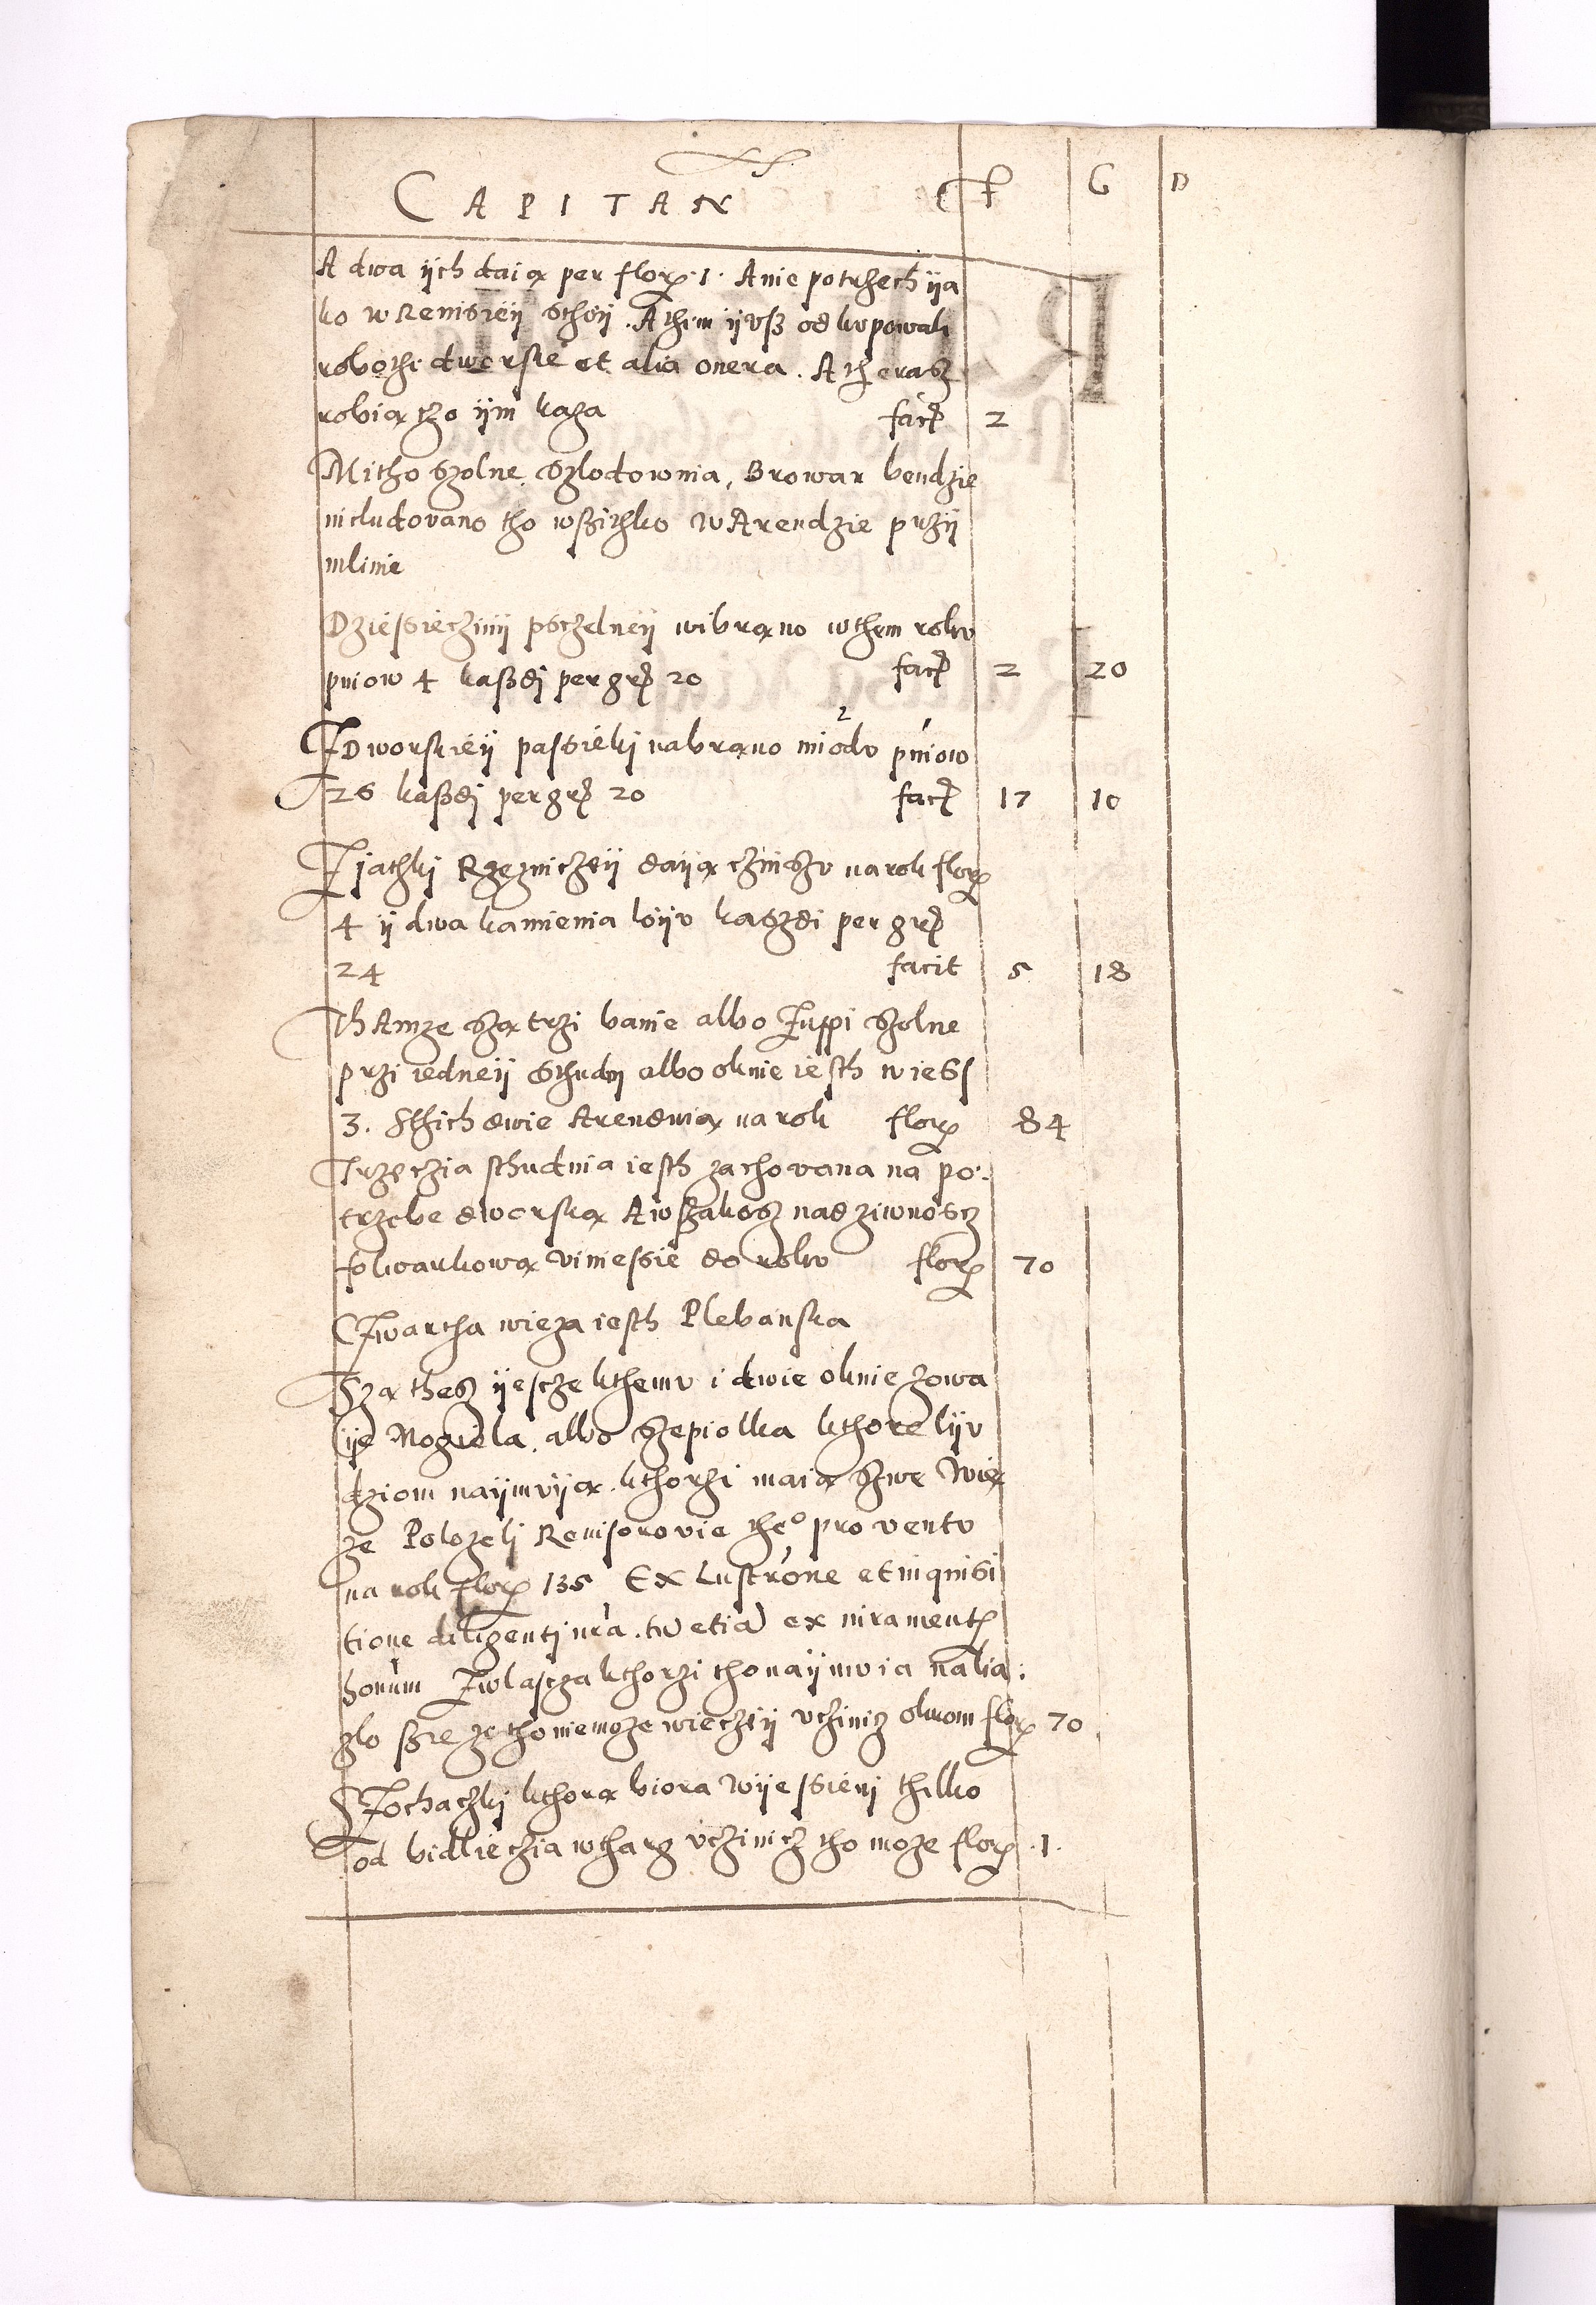 CAPITAN F G D
A dwa ijch daią per flor. 1. A nie potrzech ija
ko w Remisieij sthoij. A thim ijusz odkupowali
robothi dworskie et alia onera. A therasz
robią czo ijm kaza facit 2
Mitho szolne, Szlodownia, Browar bendzie
includovano tho wszithko w Arendzie przij
mlinie
Dziessiecinij psczelneij wibrąno w them roku
pniow 4 kaszdj per gr 20 facit 2 20
Z Dworskieij passieki nabrąno miodu pniow
26 kaszdj per gr 20 facit 17 10
Z jathkj Rzezniczeij daiją czinszu na rok flor
4 ij dwa kamienia loiju kaszdi per gr
24 facit 5 18
Thamze szą trzi banie albo Zuppi szolne
przi iedneij Studni albo oknie iesth wiess
3. Sthich dwie Arenduią na rok flor 84
Trzeczia sthudnia iesth zachovana na po:
trzebe dworską A wszakosz nad ziwnoscz
folwarkową viniessie do roku flor 70
Czwartha wieza iesth Plebanska
Szą thesz ijescze kthemu i dwie oknie zowa
ije Mogiela albo Szepiolka kthore lijv
dziom naijmvją kthorzi maią szwe Wie
ze Polozeli Revisorovie theo proventu
na rok flor 135 Ex Lustrone et inquisi
tione diligenti nra. tu etia ex iurament
honum Zwlascza kthorzi tho naijmvia nalia:
zlo szie ze tho niemoze wieczeij vcziniz oknom flor 70
S Zochaczkj kthorą biora wijessienj thilko
od bidliecia w tharg vczinicz tho moze flor .1.